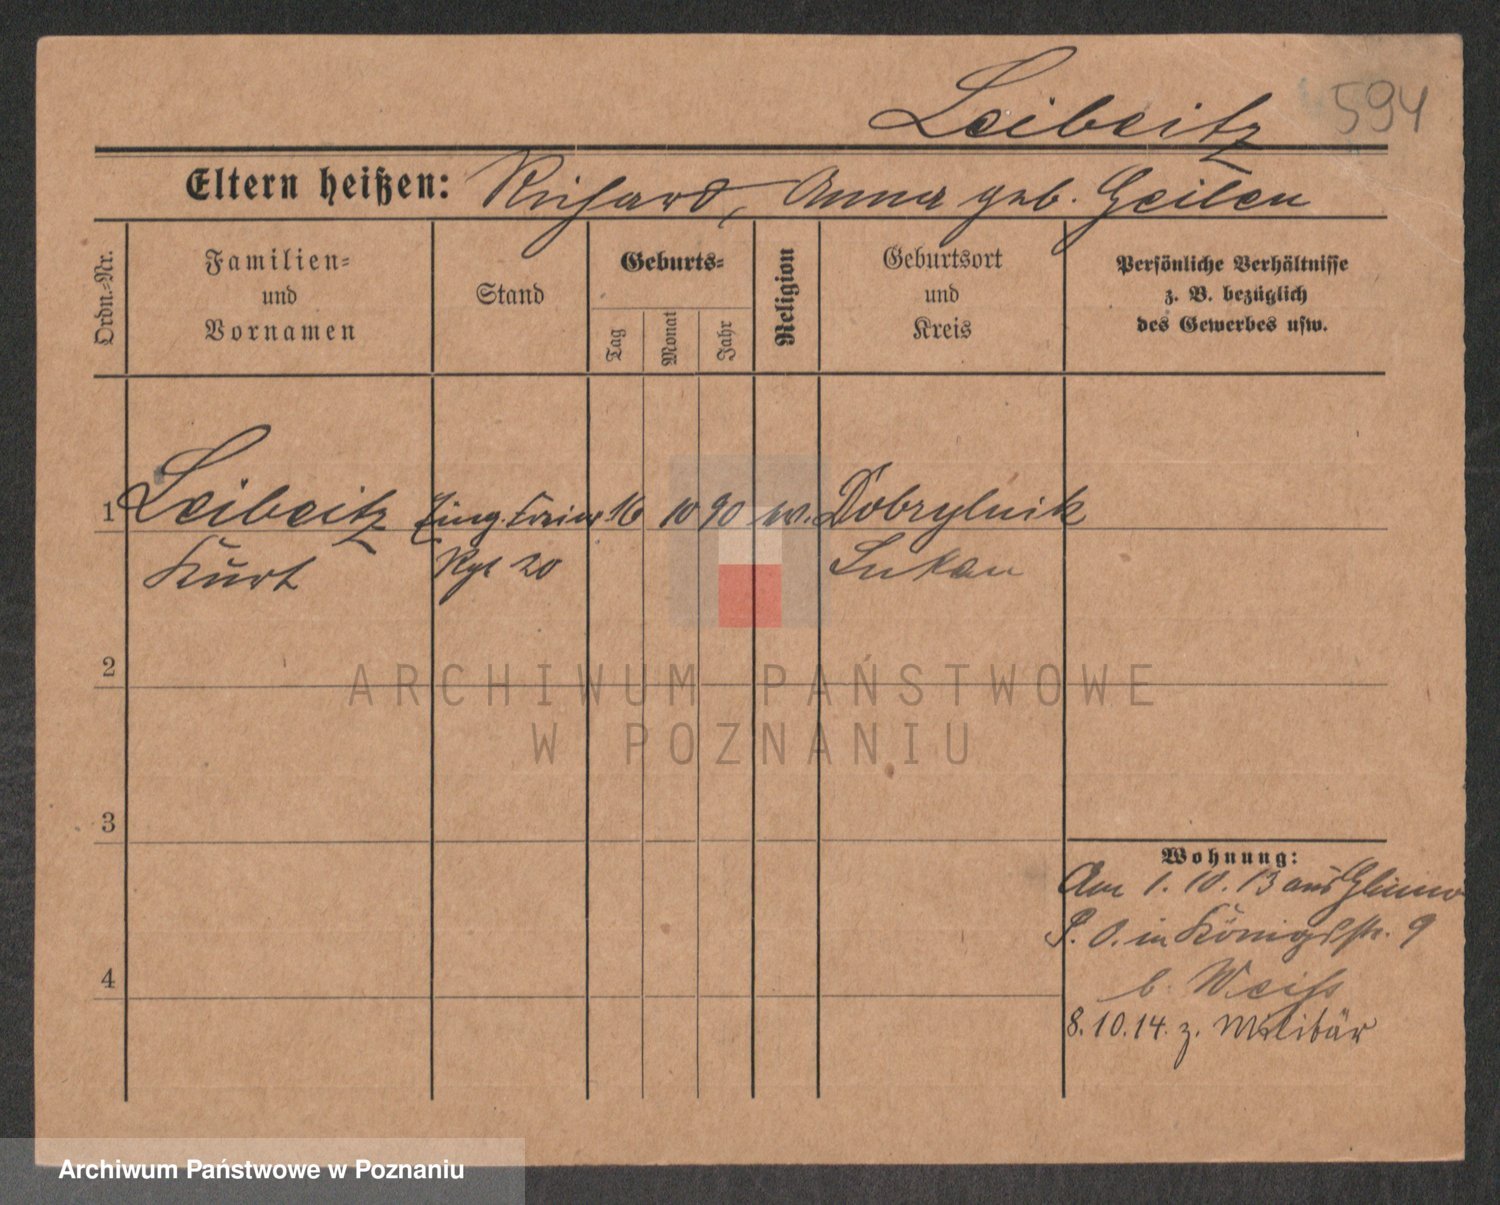 Leibeitz 594
Eltern heißen: Richard, Anna geb. Geilen
Ordn.-Nr.
Familien-
und
Vornamen
Stand
Geburts-
Tag
Monat
Jahr
Religion
Geburtsort
und
Kreis
Persönliche Verhältnisse
z. B. bezüglich
des Gewerbes usw.
1 Leibeitz 16 10 90 Dobrylnik
Kurt Rgt 20 Lukau
2
ARCHIWUM PAŃSTWOWE
W POZNANIU
3
Wohnung:
Am 1. 10. 13 aus
P. O. in Königstr. 9
4
b. Weiss
8. 10. 14. z. Militär
Archiwum Państwowe w Poznaniu